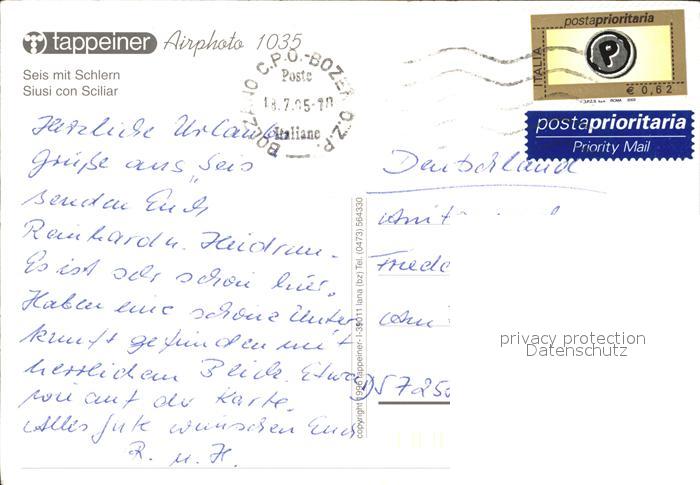 tappeiner Airphoto 1035
Seis mit Schlern
Siusi con Sciliar
BOLZANO C.P.O.-BOZEN D.Z.P.
Poste
18.7.05-19
Italiane
ITALIA
postaprioritaria
P
€ 0,62
I.P.Z.S. S.p.A. ROMA 2002
postaprioritaria
Priority Mail
Herzliche Urlaubs
grüße aus Seis
senden Euch
Reinhard u. Heidrun.
Es ist sehr schön hier.
Haben eine schöne Unter
kunft gefunden mit
herrlichem Blick. Etwa
wie auf der Karte.
Alles Gute wünschen Euch
R. u. H.
copyright 1996 tappeiner-I-39011 lana (bz) Tel. (0473) 564330
Deutschland
Friede
D 5725
privacy protection
Datenschutz